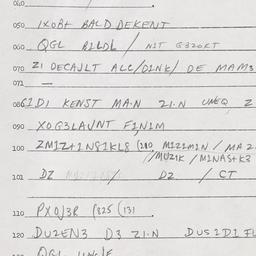 040
050 IXOBT BALD DEKENT
060 QGL RILDL / NIT G320KT
070 ZI DECAULT ALC/DINK/ DE MAM3
071 —
08 61 DI KENST MA·N 21·N UMEQ Z
090 XOG3LAUNT FINIM
100 ZMIZTINSIKLS (280 MIZIMIN / MA 2
//MUZIK / MINAS+K3
101 DZ / DZ / CT
110 PXOJ3R (825 (131
120 DUZEN3 D3 ZI·N DUSIDI FL
QGL UNGLE